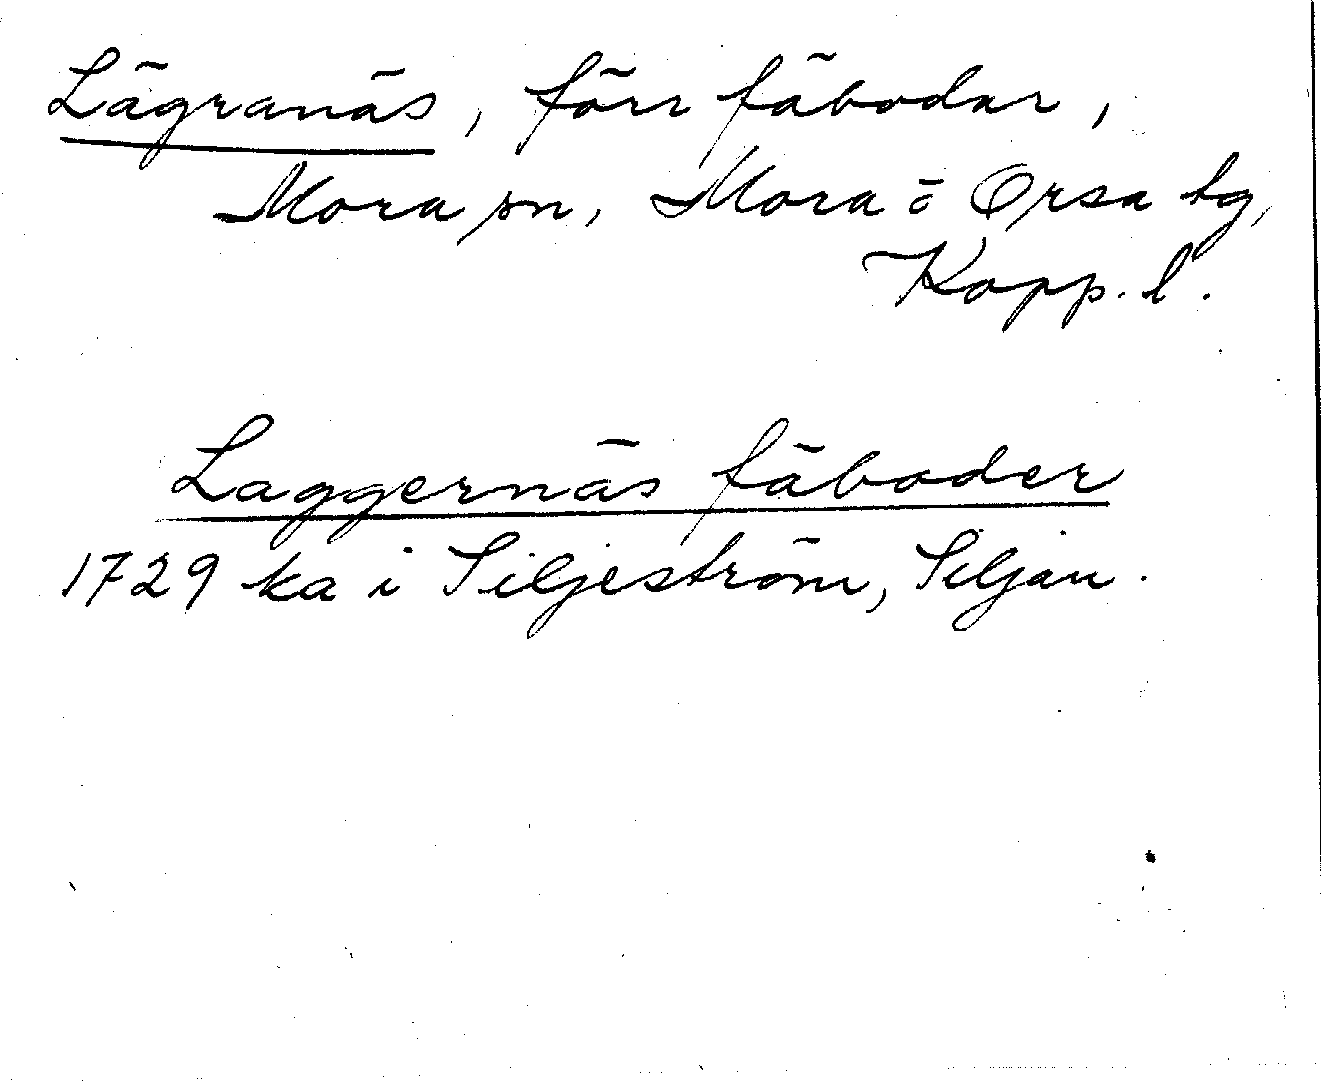 Lägranäs, förr fäbodar,
Mora sn, Mora ö Orsa tg,
Kopp. l.
Laggernäs fäboder
1729 ka i Siljeström, Siljan.